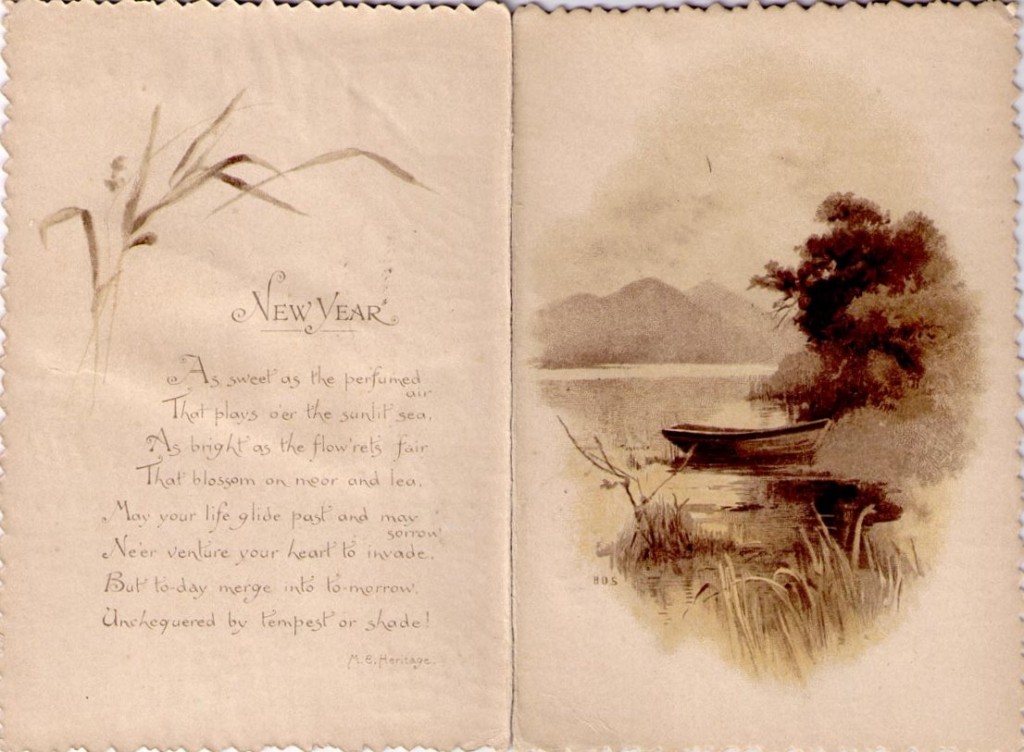 New Year
As sweet as the perfumed
air
That plays o'er the sunlit sea,
As bright as the flow'rets fair
That blossom on moor and lea,
May your life glide past and may
sorrow
Ne'er venture your heart to invade,
But to-day merge into to-morrow,
Unchequered by tempest or shade!
M.E. Heritage.
BOS